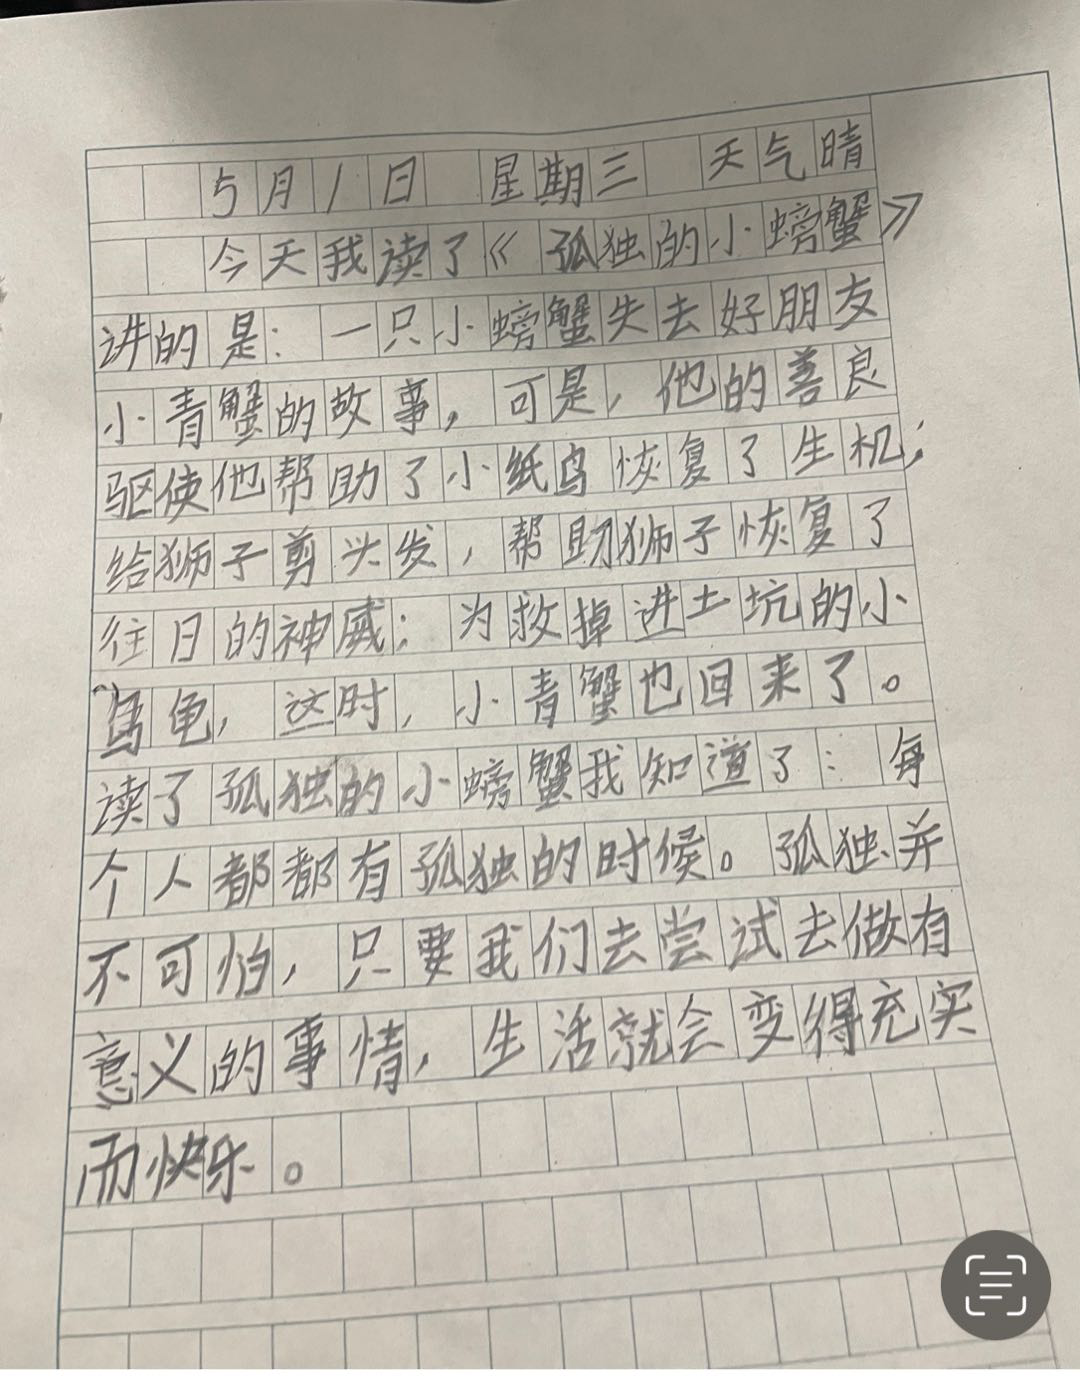 5月1日 星期三 天气晴
今天我读了《孤独的小螃蟹》
讲的是：一只小螃蟹失去好朋友
小青蟹的故事，可是，他的善良
驱使他帮助了小纸鸟恢复了生机；
给狮子剪头发，帮助狮子恢复了
往日的神威；为救掉进土坑的小
乌龟，这时，小青蟹也回来了。
读了孤独的小螃蟹我知道了：每
个人都都有孤独的时候。孤独并
不可怕，只要我们去尝试去做有
意义的事情，生活就会变得充实
而快乐。